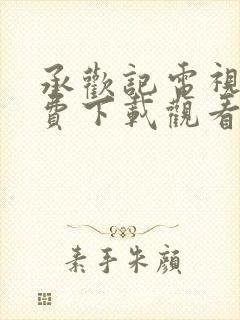 承歡記電視
費下載觀看
素手朱顔